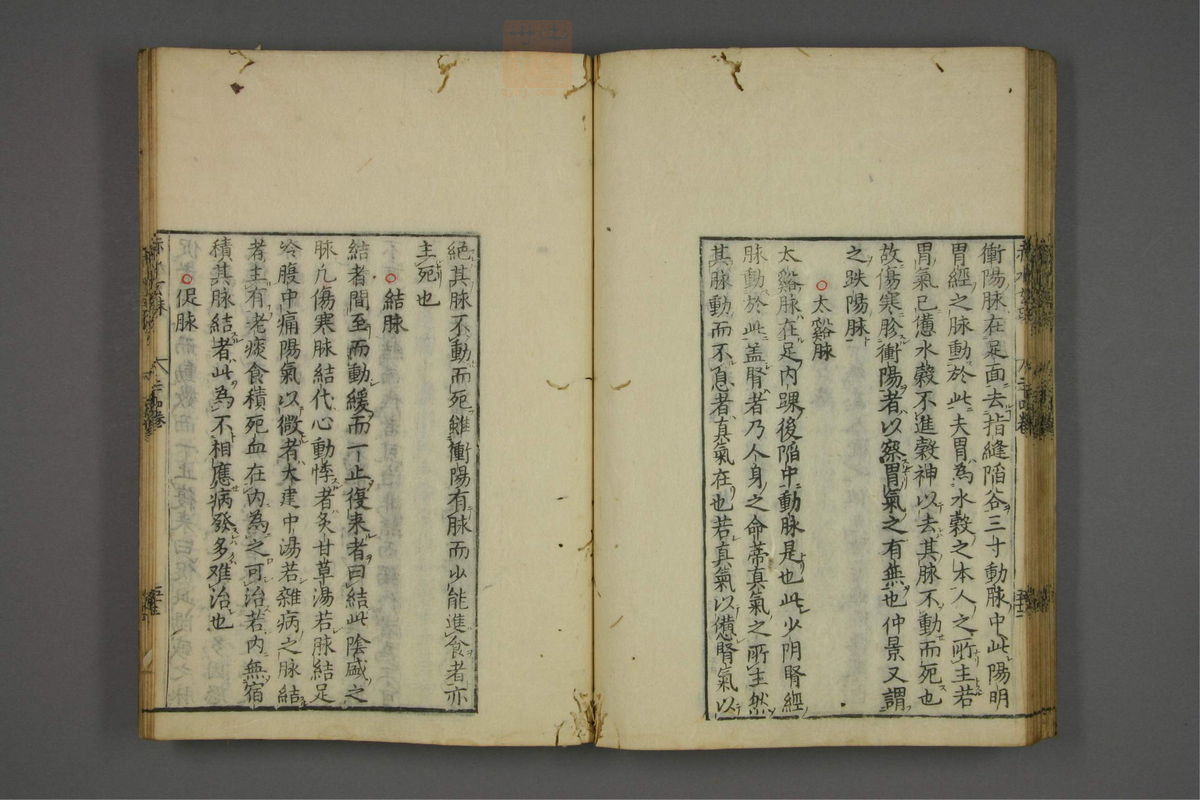 衝陽脉在足面去指縫陷谷三寸動脉中此陽明
胃經之脉動於此夫胃為水穀之本人之所主若
胃氣已憊水穀不進穀神以去其脉不動而死也
故傷寒胗衝陽者以察胃氣之有無也仲景又謂
之趺陽脉
○太谿脉
太谿脉在足內踝後陷中動脉是也此少阴腎經
脉動於此盖腎者乃人身之命蒂真氣之所主然
其脉動而不息者真氣在也若真氣以憊腎氣以
絕其脉不動而死雖衝陽有脉而少能進食者亦
主死也
○結脉
結者間至而動緩而一止復来者曰結此陰盛之
脉凡傷寒脉結代心動悸者炙甘草湯若脉結足
冷腹中痛陽氣以微者大建中湯若雜病之脉結
者主有老痰食積死血在內為之可治若內無宿
積其脉結者此為不相應病發多难治也
○促脉